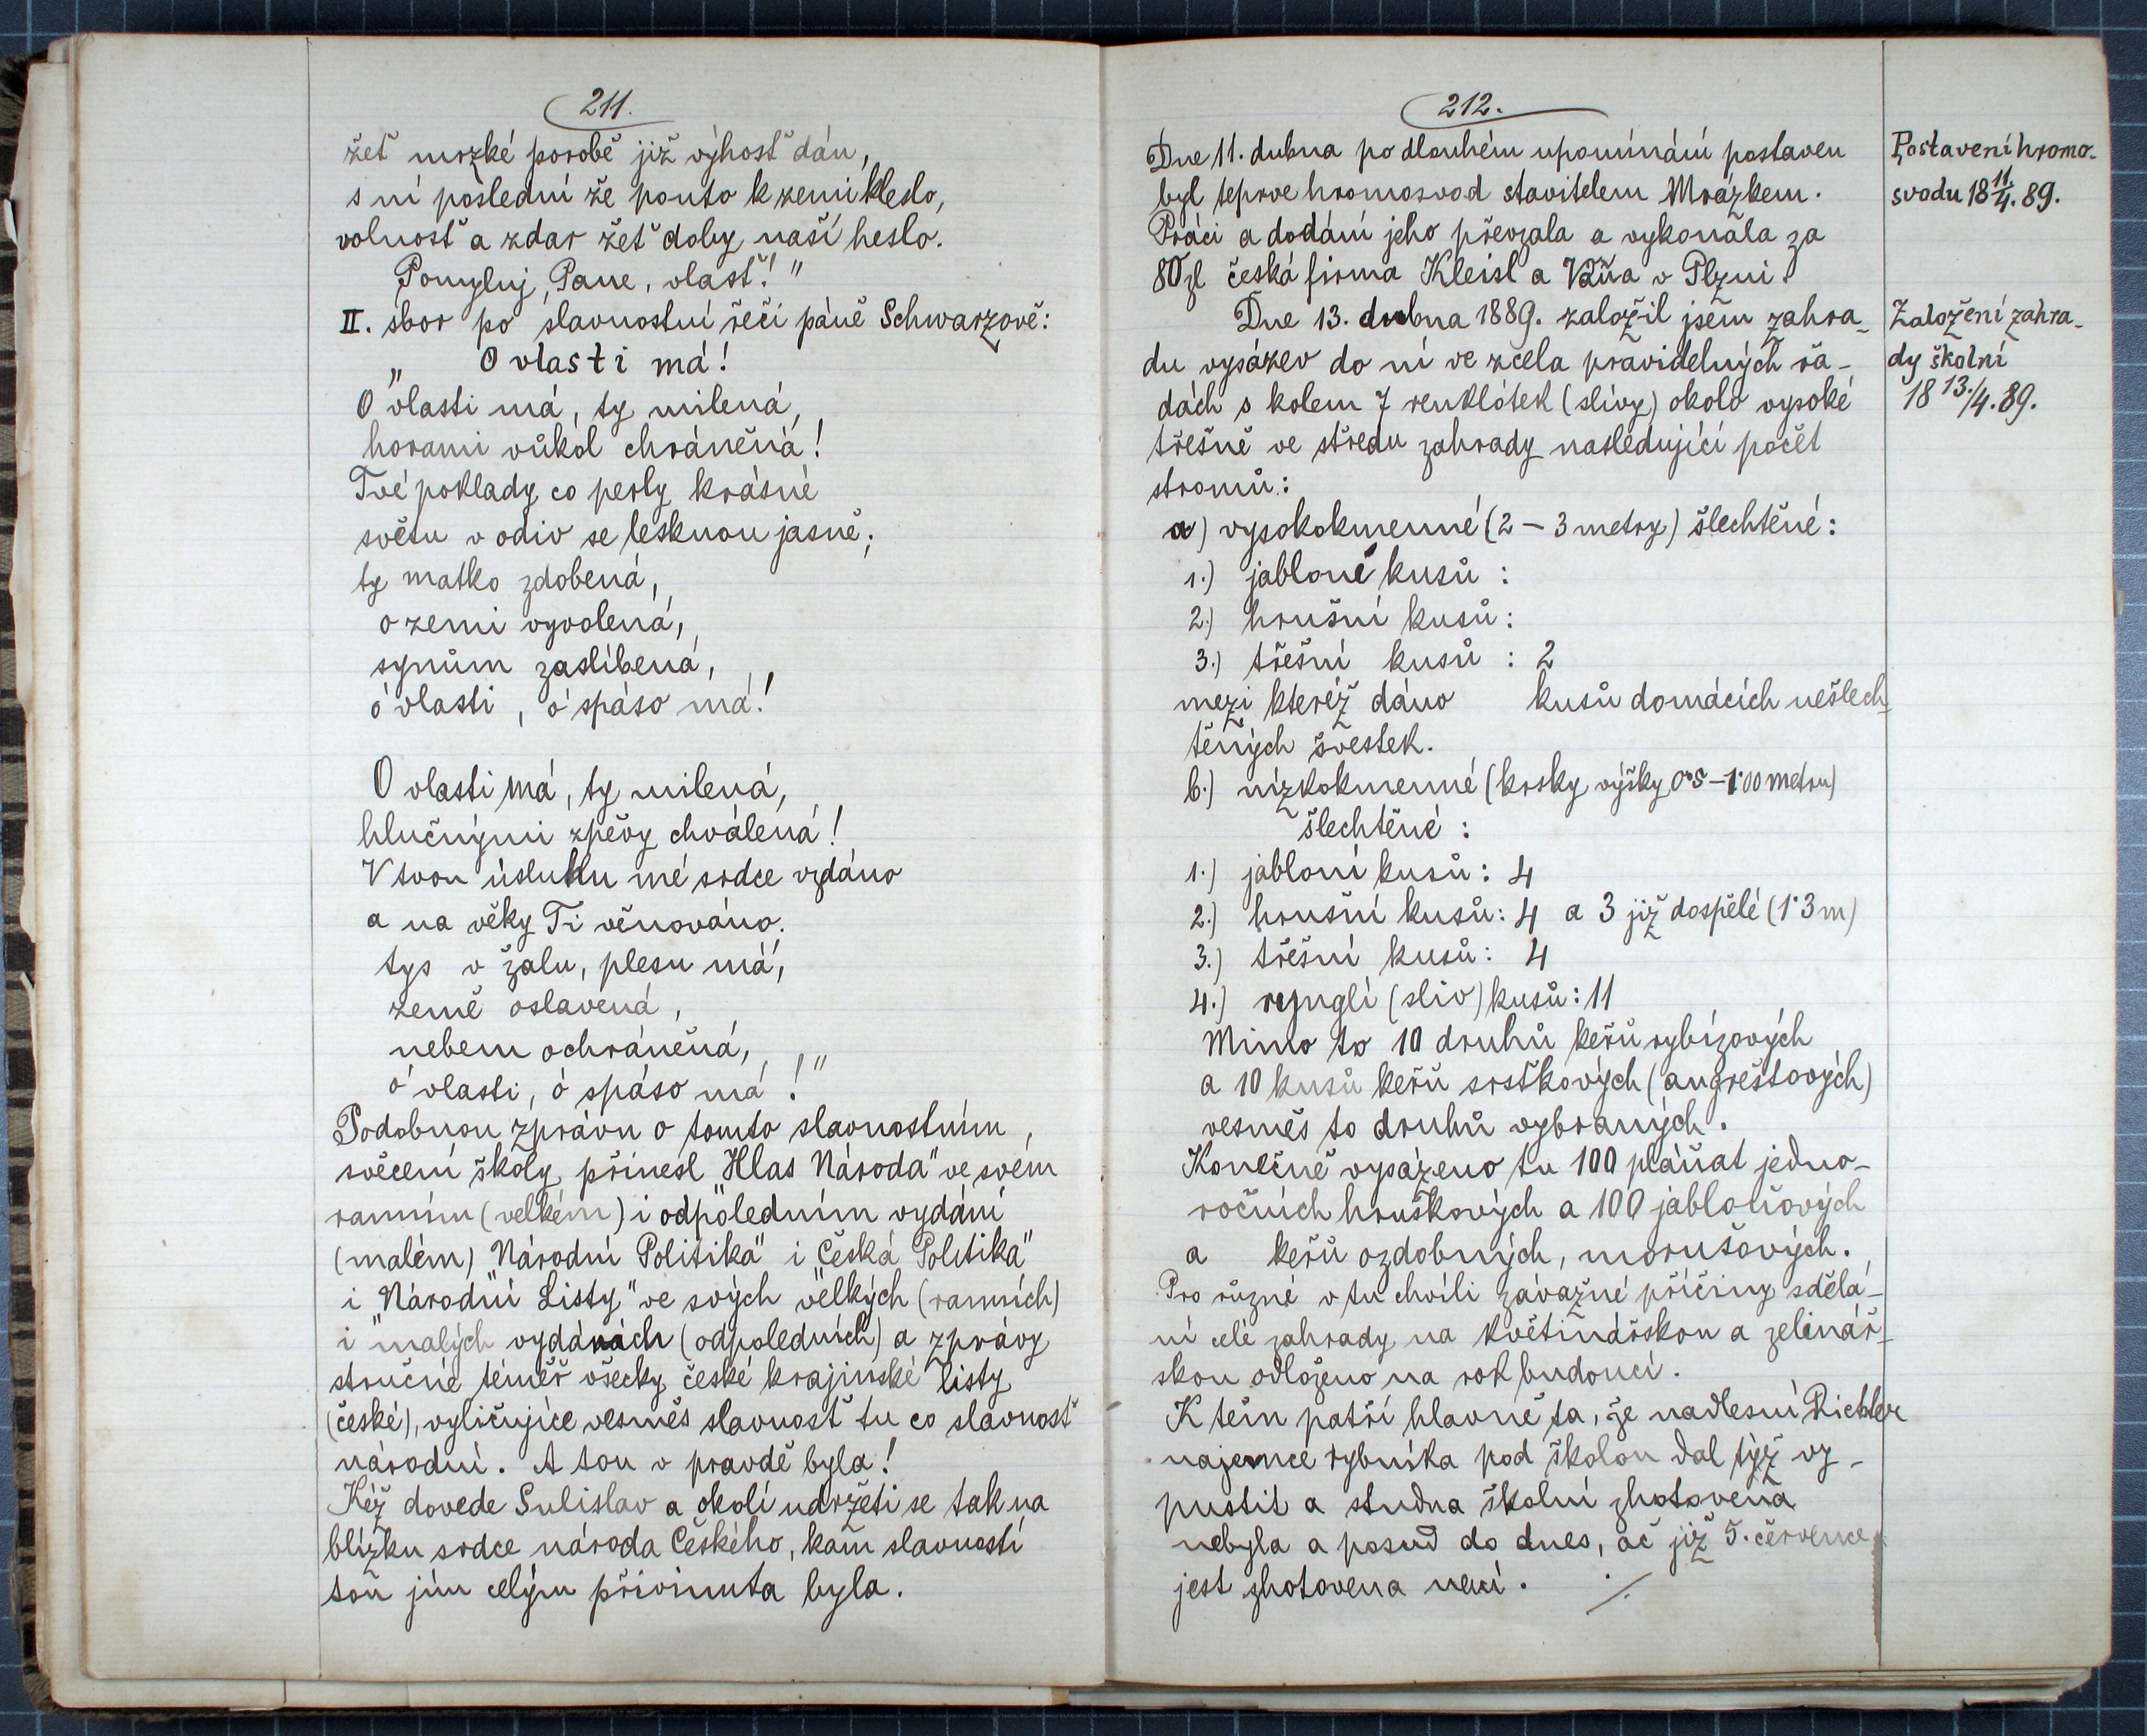 211.
žeť mrzké porobě již výhosť dán,
s ní poslední že pouto k zemi kleslo,
volnosť a zdar žeť doby naší heslo.
Pomyluj, Pane, vlasť!"
II. sbor po slavnostní řeči páně Schwarzově:
„ O vlasti má!
O vlasti má, ty milená,
horami vůkol chráněná!
Tvé poklady co perly krásné
světu v odiv se lesknou jasně;
ty matko zdobená,
o zemi vyvolená,
synům zaslíbená,
ó vlasti, ó spáso má!
O vlasti má, ty milená,
hlučnými zpěvy chválená!
V tvou úsluhu mé srdce vzdáno
a na věky Ti věnováno.
tys v žalu, plesu má,
země oslavená,
nebem ochráněná,
ó vlasti, ó spáso má!"
Podobnou zprávu o tomto slavnostním
svěcení školy přinesl "Hlas Národa" ve svém
ranním (velkém) i odpoledním vydání
(malém) "Národní Politika" i "Česká Politika"
i "Národní Listy" ve svých velkých (ranních)
i malých vydánách (odpoledních) a zprávy
stručné téměř všecky české krajinské listy
(české), vyličujíce vesměs slavnosť tu co slavnosť
národní. A tou v pravdě byla!
Kéž dovede Sulislav a okolí udržeti se tak na
blízku srdce národa Českého, kam slavností
tou jím celým přivinuta byla.
212.
Dne 11. dubna po dlouhém upomínání postaven
byl teprve hromosvod stavitelem Mrázkem.
Práci a dodání jeho převzala a vykonala za
80 zl česká firma Kleisl a Váňa v Plzni.
Dne 13. dubna 1889. založil jsem zahra-
du vysázev do ní ve zcela pravidelných řa-
dách s kolem 7 renklótek (slívy) okolo vysoké
třešně ve středu zahrady nasledující počet
stromů:
a) vysokokmenné (2 – 3 metry) šlechtěné:
1.) jabloně kusů :
2.) hrušní kusů :
3.) třešní kusů : 2
mezi kteréž dáno kusů domácích nešlech-
těných švestek.
b.) nízkokmenné (krsky výšky 0·8 – 1·00 metru)
šlechtěné :
1.) jabloní kusů : 4
2.) hrušní kusů : 4 a 3 již dospělé (1·3 m)
3.) třešní kusů : 4
4.) rynglí (sliv) kusů : 11
Mimo to 10 druhů keřů rybízových
a 10 kusů keřů srstkových (angreštových)
vesměs to druhů vybraných.
Konečně vysázeno tu 100 pláňat jedno-
ročních hruškových a 100 jabloňových
a keřů ozdobných, morušových.
Pro různé v tu chvíli závažné příčiny sdělá-
ní celé zahrady na květinářskou a zelinář-
skou odloženo na rok budoucí.
K těm patří hlavně ta, že nadlesní Richter
najemce rybníka pod školou dal týž vy-
pustit a studna školní zhotovena
nebyla a posud do dnes, ač již 5. července
jest zhotovena není. ./.
Postavení hromo-
svodu 18 11/4. 89.
Založení zahra-
dy školní
18 13./4. 89.